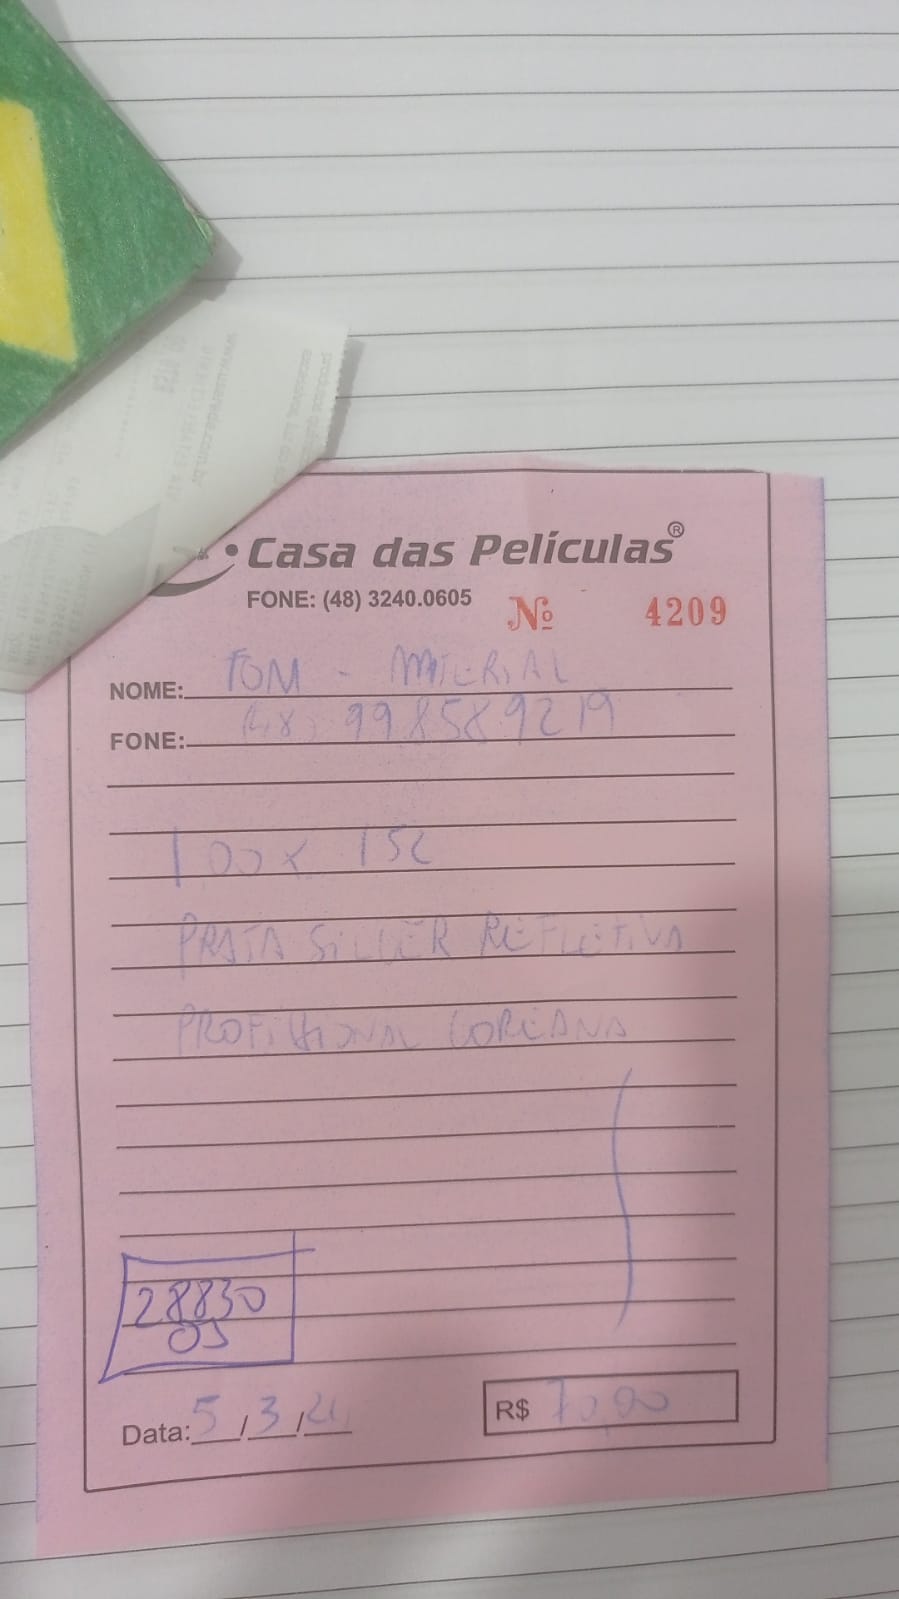 Casa das Películas®
FONE: (48) 3240.0605
Nº 4209
NOME: TOM - MATERIAL
FONE: (48) 998589219
1,00 x 152
PRATA SILVER REFLETIVA
PROFISSIONAL COREANA
28830
OS
Data: 5/3/
R$ 70,00